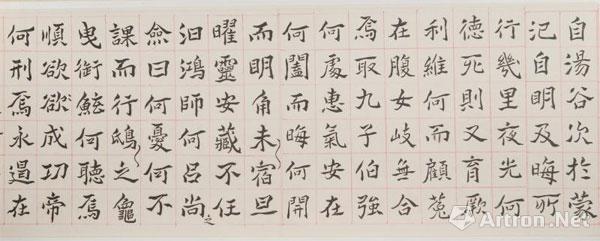 自湯谷次於蒙
汜自明及晦所
行幾里夜光何
德死則又育厥
利維何而顧菟
在腹女岐無合
焉取九子伯強
何處惠氣安在
何闔而晦何開
而明角未宿旦
曜靈安藏不任
汩鴻師何呂尚之
僉曰何憂何不
課而行鴟之龜
曳銜鯀何聽焉
順欲欲成功帝
何刑焉永遏在
Artron.Net